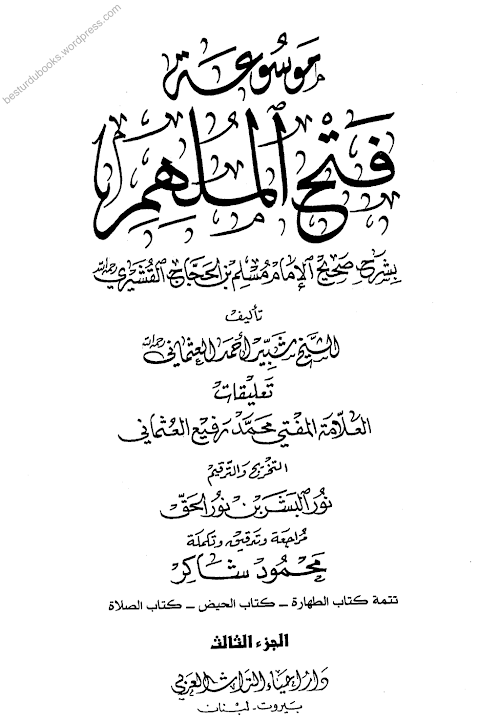 besturdubooks.wordpress.com
موسوعة
فتح الملهم
بشرح صحيح الإمام مسلم بن الحجاج القشيري رحمه الله
تأليف
الشيخ شبير أحمد العثماني رحمه الله
تعليقات
العلامة المفتي محمد رفيع العثماني
التخريج والترقيم
نور البشر بن نور الحق
مراجعة وتدقيق وتكملة
محمود شاكر
تتمة كتاب الطهارة – كتاب الحيض – كتاب الصلاة
الجزء الثالث
دار إحياء التراث العربي
بيروت - لبنان